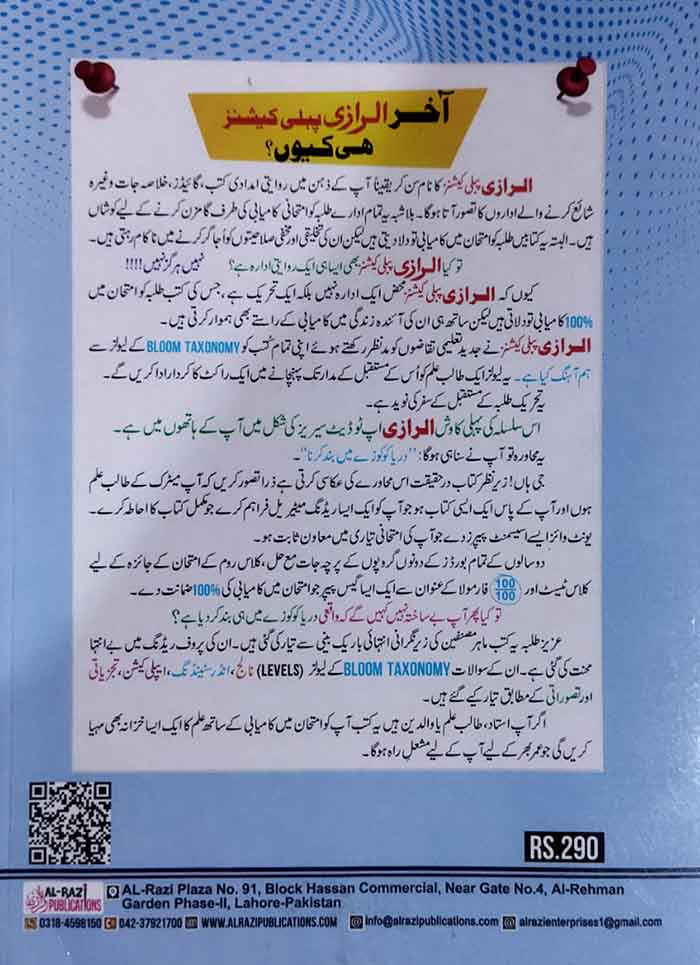 آخر الرازی پبلی کیشنز
ھی کیوں؟
الرازی پبلی کیشنز کا نام سن کر یقیناً آپ کے ذہن میں روایتی امدادی کتب، گائیڈز، خلاصہ جات وغیرہ
شائع کرنے والے اداروں کا تصور آتا ہوگا۔ بلاشبہ یہ تمام ادارے طلبہ کو امتحانی کامیابی کی طرف گامزن کرنے کے لیے کوشاں
ہیں۔ البتہ یہ کتابیں طلبہ کو امتحان میں کامیابی تو دلا دیتی ہیں لیکن ان کی تخلیقی اور مخفی صلاحیتوں کو اُجاگر کرنے میں ناکام رہتی ہیں۔
تو کیا الرازی پبلی کیشنز بھی ایسا ہی ایک روایتی ادارہ ہے؟ نہیں ہرگز نہیں!!!!
کیوں کہ الرازی پبلی کیشنز محض ایک ادارہ نہیں بلکہ ایک تحریک ہے، جس کی کتب طلبہ کو امتحان میں
100% کامیابی تو دلاتی ہیں لیکن ساتھ ہی ان کی آئندہ زندگی میں کامیابی کے راستے بھی ہموار کرتی ہیں۔
الرازی پبلی کیشنز نے جدید تعلیمی تقاضوں کو مدنظر رکھتے ہوئے اپنی تمام کُتب کو BLOOM TAXONOMY کے لیولز سے
ہم آہنگ کیا ہے۔ یہ لیولز ایک طالب علم کو اُس کے مستقبل کے مدار تک پہنچانے میں ایک راکٹ کا کردار ادا کریں گے۔
یہ تحریک طلبہ کے مستقبل کے سفر کی نوید ہے۔
اس سلسلہ کی پہلی کاوش الرازی اپ ٹو ڈیٹ سیریز کی شکل میں آپ کے ہاتھوں میں ہے۔
یہ محاورہ تو آپ نے سنا ہی ہوگا: "دریا کو کوزے میں بند کرنا"۔
جی ہاں! زیرِ نظر کتاب درحقیقت اس محاورے کی عکاسی کرتی ہے ذرا تصور کریں کہ آپ میٹرک کے طالب علم
ہوں اور آپ کے پاس ایک ایسی کتاب ہو جو آپ کو ایک ایسا ریڈنگ میٹیریل فراہم کرے جو مکمل کتاب کا احاطہ کرے۔
یونٹ وائز ایسے اسیسمنٹ پیپرز دے جو آپ کی امتحانی تیاری میں معاون ثابت ہو۔
دو سالوں کے تمام بورڈز کے دونوں گروپوں کے پرچہ جات مع حل، کلاس روم کے امتحان کے جائزہ کے لیے
کلاس ٹیسٹ اور 100/100 فارمولا کے عنوان سے ایک ایسا گیس پیپر جو امتحان میں کامیابی کی 100% ضمانت دے۔
تو کیا پھر آپ بے ساختہ نہیں کہیں گے کہ واقعی دریا کو کوزے میں ہی بند کر دیا ہے؟
عزیز طلبہ یہ کتب ماہر مصنفین کی زیرِ نگرانی انتہائی باریک بینی سے تیار کی گئی ہیں۔ ان کی پروف ریڈنگ میں بے انتہا
محنت کی گئی ہے۔ ان کے سوالات BLOOM TAXONOMY کے لیولز (LEVELS) نالج، انڈرسٹینڈنگ، ایپلی کیشن، تجزیاتی
اور تصوراتی کے مطابق تیار کیے گئے ہیں۔
اگر آپ استاد، طالب علم یا والدین ہیں یہ کتب آپ کو امتحان میں کامیابی کے ساتھ علم کا ایک ایسا خزانہ بھی مہیا
کریں گی جو عمر بھر کے لیے آپ کے لیے مشعلِ راہ ہوگا۔
RS.290
AL-RAZI
PUBLICATIONS
AL-Razi Plaza No. 91, Block Hassan Commercial, Near Gate No.4, Al-Rehman
Garden Phase-II, Lahore-Pakistan
0318-4598150 042-37921700 WWW.ALRAZIPUBLICATIONS.COM info@alrazipublications.com alrazienterprises1@gmail.com